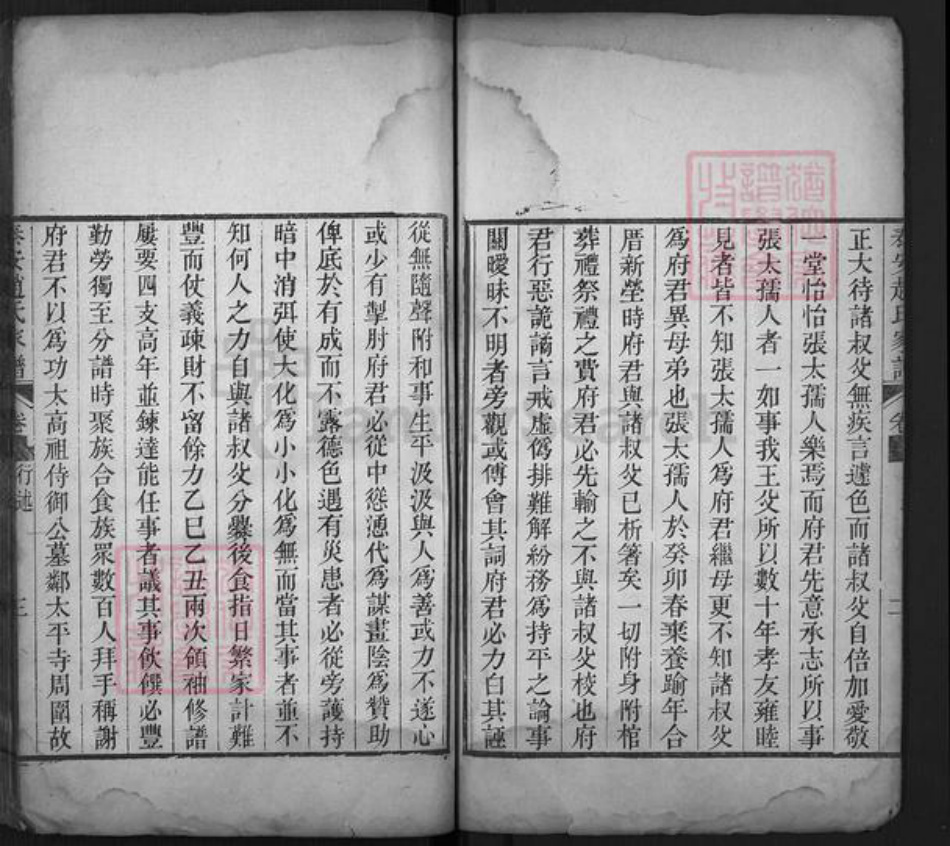 泰安趙氏家譜
正大待諸叔父無疾言遽色而諸叔父自倍加愛敬
一堂怡怡張太孺人樂焉而府君先意承志所以事
張太孺人者一如事我王父所以數十年孝友雍睦
見者皆不知張太孺人爲府君繼母更不知諸叔父
爲府君異母弟也張太孺人於癸卯春棄養踰年合
厝新塋時府君與諸叔父已析箸矣一切附身附棺
葬禮祭禮之費府君必先輸之不與諸叔父校也府
君行惡詭譎言戒虛僞排難解紛務爲持平之論事
關曖昧不明者旁觀或傅會其詞府君必力白其誣
從無隨聲附和事生平汲汲與人爲善或力不遂心
或少有掣肘府君必從中慫慂代爲謀畫陰爲贊助
俾底於有成而不露德色遇有災患者必從旁護持
暗中消弭使大化爲小小化爲無而當其事者並不
知何人之力自與諸叔父分爨後食指日繁家計難
豐而仗義疎財不留餘力乙巳乙丑兩次領袖修譜
屢要四支高年並鍊達能任事者議其事飲饌必豐
勤勞獨至分譜時聚族合食族眾數百人拜手稱謝
府君不以爲功太高祖侍御公墓鄰太平寺周圍故
泰安趙氏家譜 卷 行述 三